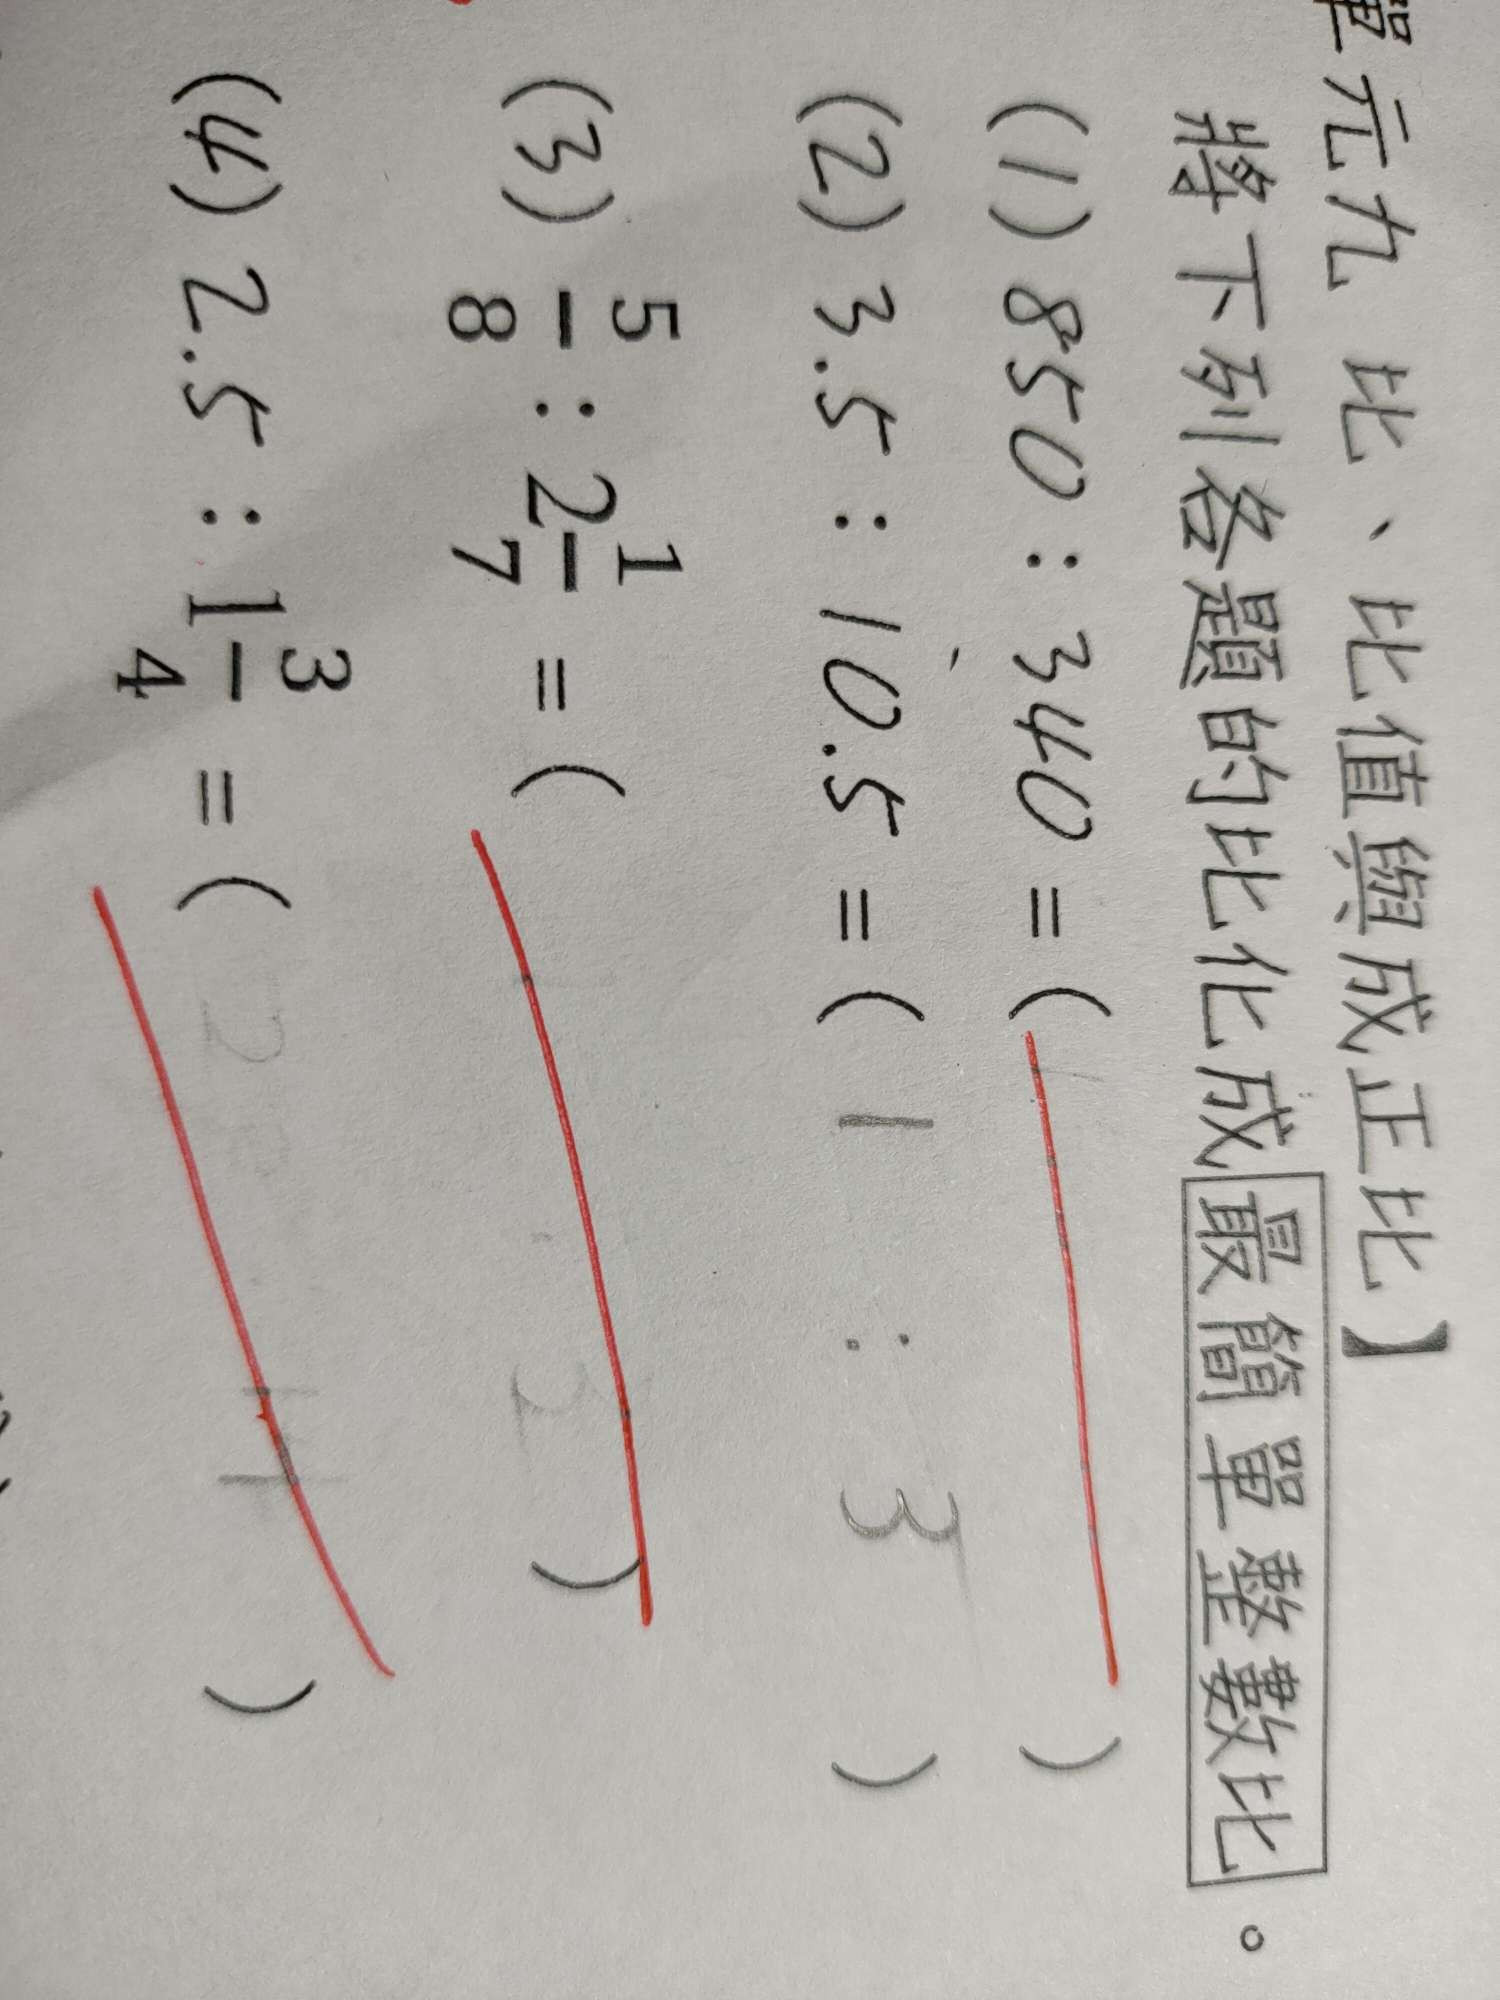 單元九 比、比值與成正比】
將下列各題的比化成最簡單整數比。
(1) 850 : 340 = ( )
(2) 3.5 : 10.5 = ( 1 : 3 )
(3) 5/8 : 2 1/7 = ( )
(4) 2.5 : 1 3/4 = ( )